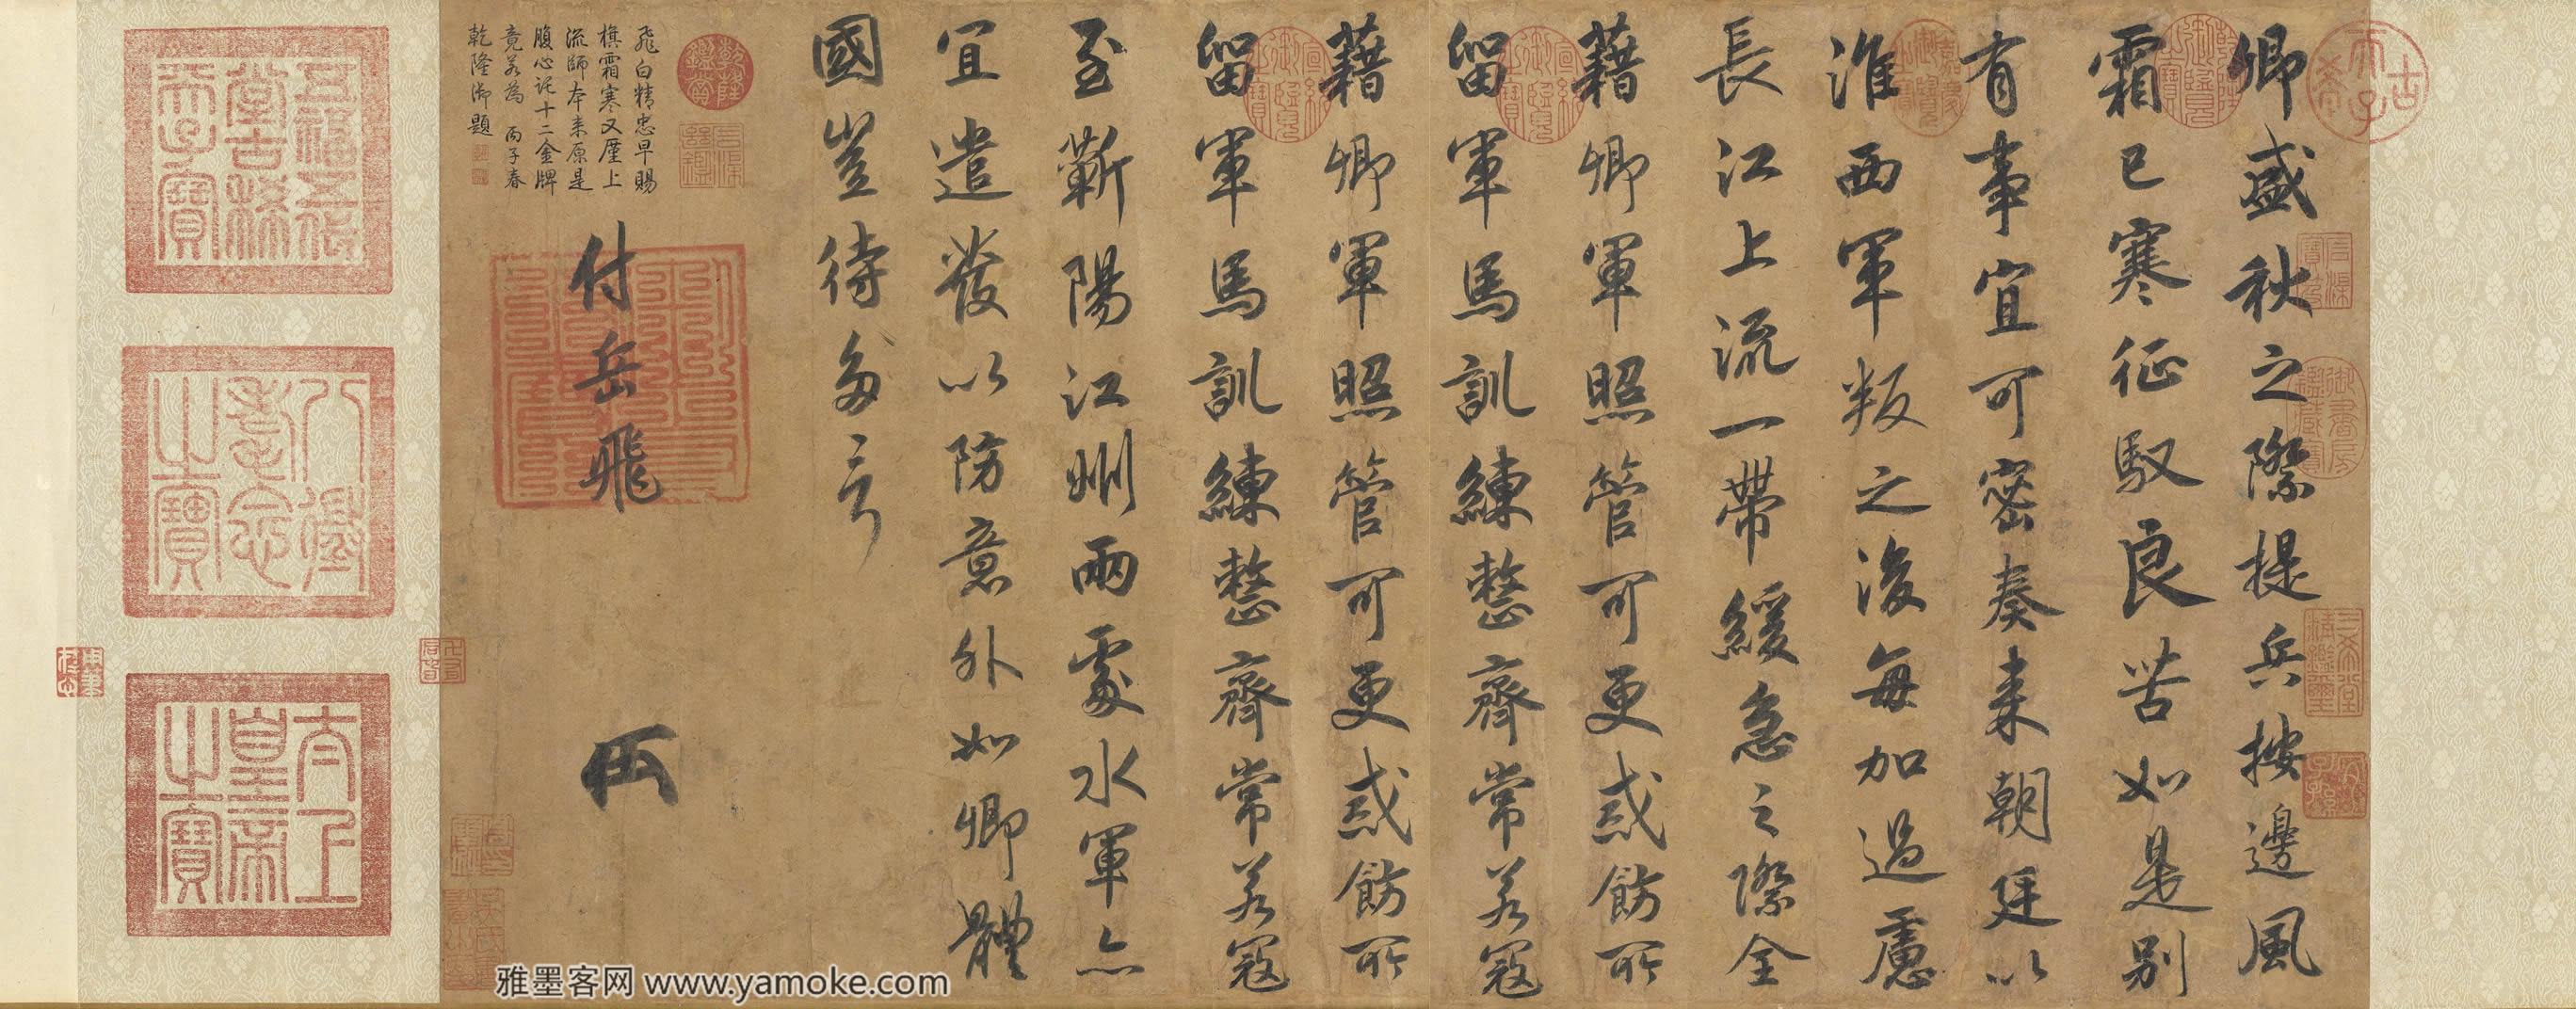 古希天子
卿盛秋之際提兵按邊風
霜已寒征馭良苦如是別
有事宜可密奏来朝廷以
淮西軍叛之後每加過慮
長江上流一帶緩急之際全
藉卿軍照管可更戒飭所
留軍馬訓練整齊常若寇
藉卿軍照管可更戒飭所
留軍馬訓練整齊常若寇
至蘄陽江州兩處水軍亦
宜遣發以防意外如卿體
國豈待多言
付岳飛
乾隆鑑賞
飛白精忠早賜
旗霜寒又廑上
流師本来原是
腹心託十二金牌
竟若為 丙子春
乾隆御題
五福五代
堂古稀
天子寶
八徵
耄念
之寶
太上
皇帝
之寶
雅墨客网 www.yamoke.com